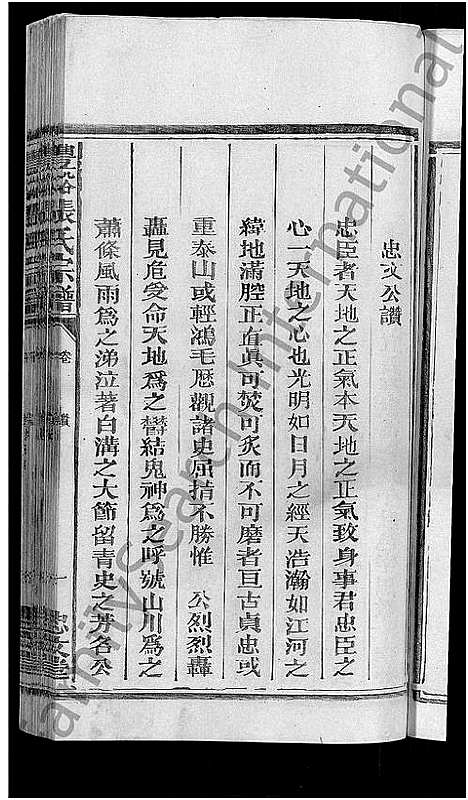 忠文公讚
忠臣者天地之正氣本天地之正氣致身事君忠臣之
心一天地之心也光明如日月之經天浩瀚如江河之
緯地滿腔正直眞可焚可炙而不可磨者亘古貞忠或
重泰山或輕鴻毛厯觀諸史屈指不勝惟 公烈烈轟
轟見危受命天地爲之鬱結鬼神爲之呼號山川爲之
蕭條風雨爲之涕泣著白溝之大節留靑史之芳名公
豐谿張氏宗譜
卷
讚
一
忠文堂
FamilySearch International